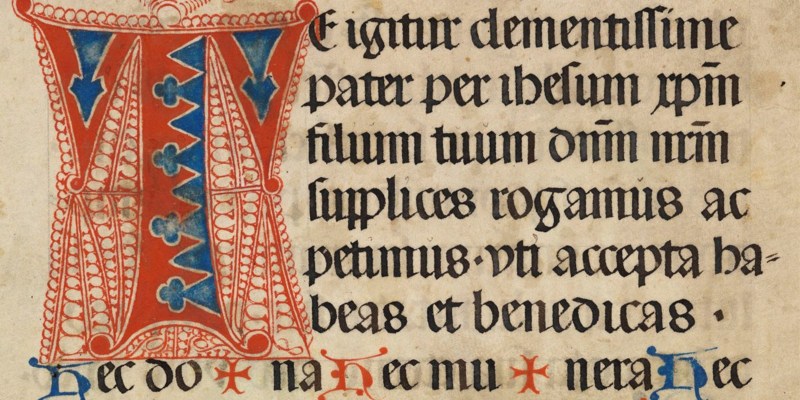 TE igitur clementissime
pater per ihesum xp̄m
filium tuum dn̄m nr̄m
supplices rogamus ac
petimus·vti accepta ha-
beas et benedicas ·
Hec do ✠ na Hec mu ✠ nera Hec